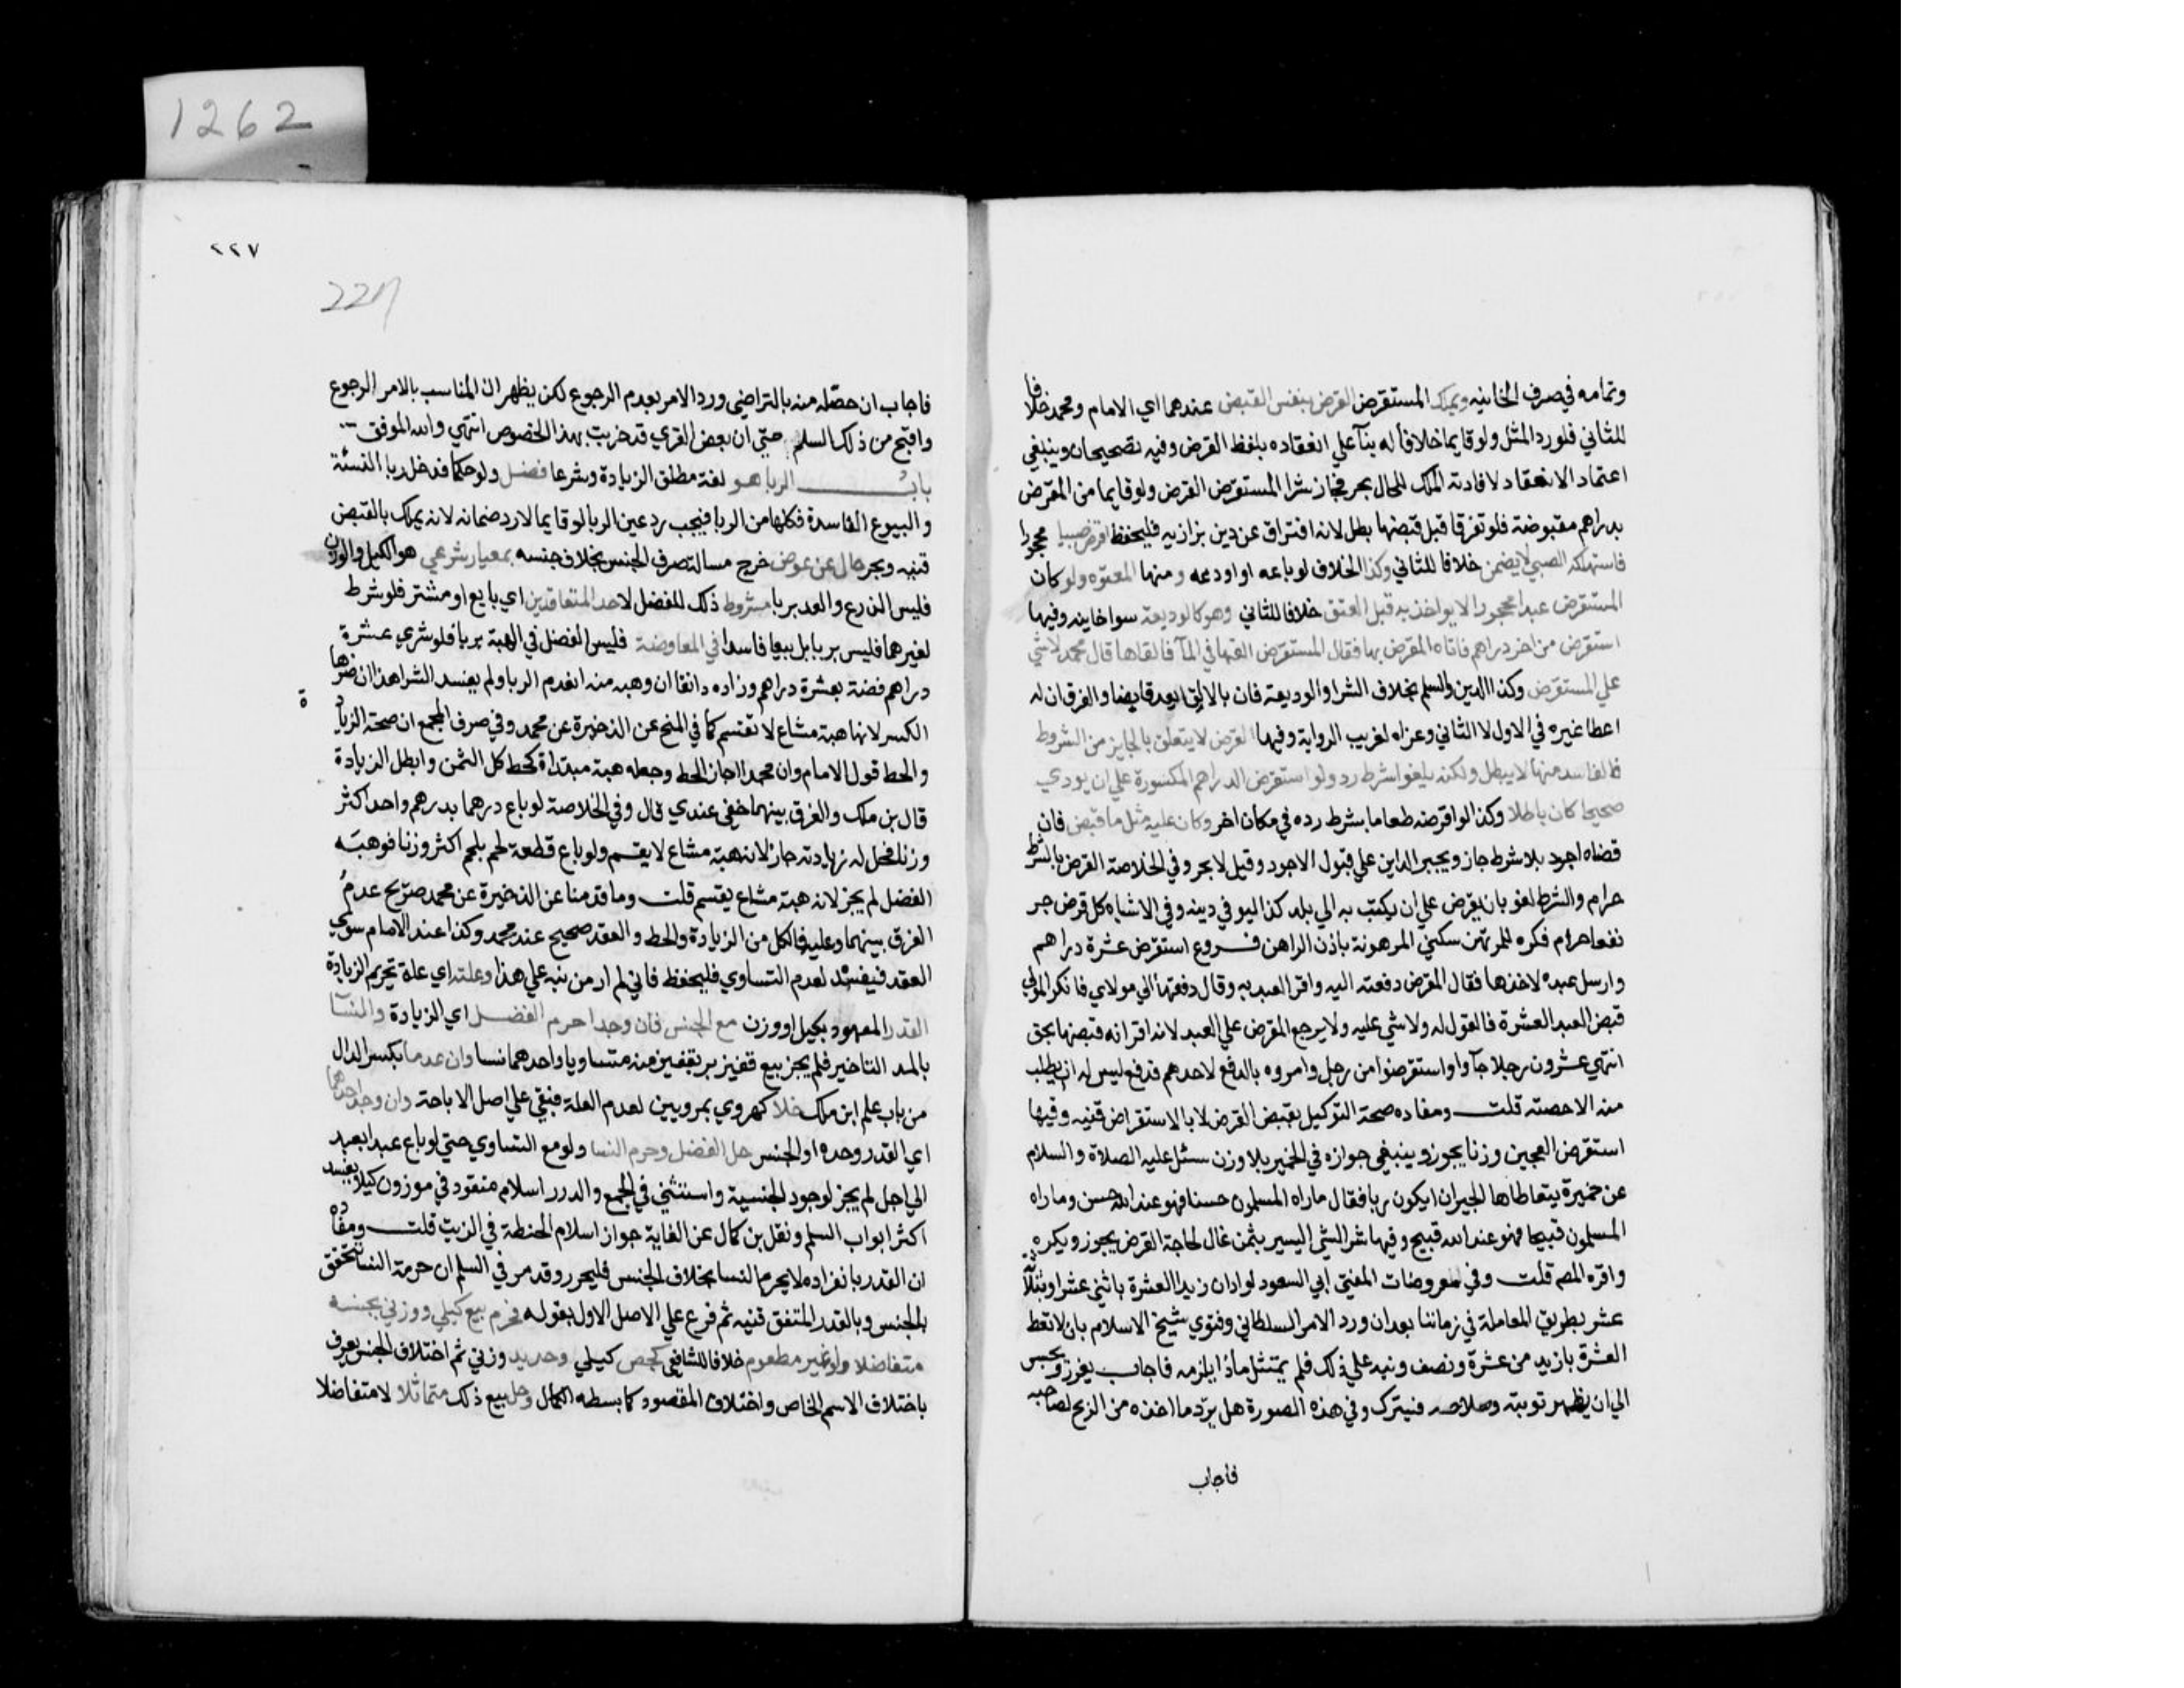 وتمامه في صرف الخانيه ويملك المستقرض القرض بنفس القبض عندهما اي الامام ومحمد خلافا
للثاني فلو رد المثل ولو قايما خلافا له بنآ علي انعقاده بلفظ القرض وفيه تصحيحان وينبغي
اعتماد الانعقاد لافادته الملك للحال بحر فجاز شرا المستقرض القرض ولو قايما من المقرض
بدراهم مقبوضة فلو تفرقا قبل قبضها بطل لانه افتراق عن دين بزازيه فليحفظ اقرض صبيا محجورا
فاستهلكه الصبي لا يضمن خلافا للثاني وكذا الخلاف لو باعه او اودعه ومنها المعتوه ولو كان
المستقرض عبدا محجورا لا يواخذ به قبل العتق خلافا للثاني وهو كالوديعة سوا خانيه وفيها
استقرض من اخر دراهم فاتاه المقرض بها فقال المستقرض القها في المآ فالقاها قال محمد لا شي
علي المستقرض وكذا الدين والسلم بخلاف الشرا والوديعة فان بالالقا يعد قابضا والفرق ان له
اعطا غيره في الاول لا الثاني وعزاه لغريب الرواية وفيها القرض لا يتعلق بالجايز من الشروط
فالفاسد منها لا يبطله ولكنه يلغو اشرط رد ولو استقرض الدراهم المكسورة علي ان يودي
صحيحا كان باطلا وكذا لو اقرضه طعاما بشرط رده في مكان اخر وكان عليه مثل ما قبض فان
قضاه اجود بلا شرط جاز ويجبر الداين علي قبول الاجود وقيل لا بحر وفي الخلاصة القرض بالشرط
حرام والشرط لغو بان يقرض علي ان يكتب به الي بلد كذا ليوفي دينه وفي الاشباه كل قرض جر
نفعا حرام فكره للمرتهن سكني المرهونة باذن الراهن فروع استقرض عشرة دراهم
وارسل عبده لاخذها فقال المقرض دفعته اليه واقر العبد به وقال دفعتها الي مولاي فانكر المولي
قبض العبد العشرة فالقول له ولا شي عليه ولا يرجع المقرض علي العبد لانه اقر انه قبضها بحق
انتهي عشرون رجلا جآوا واستقرضوا من رجل وامروه بالدفع لاحدهم فدفع ليس له ان يطلب
منه الا حصته قلت ومفاده صحة التوكيل بقبض القرض لا بالاستقراض قنيه وفيها
استقرض العجين وزنا يجوز وينبغي جوازه في الخمير بلا وزن سئل عليه الصلاة والسلام
عن خميرة يتعاطاها الجيران ايكون ربا فقال ما راه المسلمون حسنا فهو عند الله حسن وما راه
المسلمون قبيحا فهو عند الله قبيح وفيها شرا الشي اليسير بثمن غال لحاجة القرض يجوز ويكره
واقره المصـ قلت وفي معروضات المفتي ابي السعود لو ادان زيد العشرة باثني عشر او بثلآثة
عشر بطريق المعاملة في زماننا بعد ان ورد الامر السلطاني وفتوي شيخ الاسلام بان لا تعط
العشرة بازيد من عشرة ونصف ونبه علي ذلك فلم يمتثل ماذا يلزمه فاجاب يعزر ويحبس
الي ان يظهر توبته وصلاحه فيترك وفي هذه الصورة هل يرد ما اخذه من الربح لصاحبه
فاجاب
٢٢٧
227
فاجاب ان حصله منه بالتراضي ورد الامر بعدم الرجوع لكن يظهر ان المناسب بالامر الرجوع
واقبح من ذلك السلم حتي ان بعض القري قد خربت بهذا الخصوص انتهي والله الموفق
باب الربا هو لغة مطلق الزيادة وشرعا فضل ولو حكما فدخل ربا النسئة
والبيوع الفاسدة فكلها من الربا فيجب رد عين الربا لو قايما لا رد ضمانه لانه يملك بالقبض
قنيه وبحر خال عن عوض خرج مسالة صرف الجنس بخلاف جنسه بمعيار شرعي هو الكيل والوزن
فليس الذرع والعد بربا مشروط ذلك الفضل لاحد المتعاقدين اي بايع او مشتر فلو شرط
لغيرهما فليس بربا بل بيعا فاسدا في المعاوضة فليس الفضل في الهبة بربا فلو شري عشرة
دراهم فضة بعشرة دراهم وزاده دانقا ان وهبه منه انعدم الربا ولم يفسد الشرا هذا ان ضرها
الكسر لانها هبة مشاع لا تقتسم كما في المنح عن الذخيرة عن محمد وفي صرف المجمع ان صحة الزيادة
والحط قول الامام وان محمدا اجاز الحط وجعله هبة مبتداة كحط كل الثمن وابطل الزيادة
قال بن ملك والفرق بينهما خفي عندي قال وفي الخلاصة لو باع درهما بدرهم واحد اكثر
وزنا فحلل له زيادته جاز لانه هبة مشاع لا يقسم ولو باع قطعة لحم بلحم اكثر وزنا فوهبه
الفضل لم يجز لانه هبة مشاع يقسم قلت وما قدمنا عن الذخيرة عن محمد صريح عدم
الفرق بينهما وعليه فالكل من الزيادة والحط والعقد صحيح عند محمد وكذا عند الامام سوي
العقد فيفسد لعدم التساوي فليحفظ فاني لم ار من نبه علي هذا وعلته اي علة تحريم الزيادة
القدر المعهود بكيل او وزن مع الجنس فان وجدا حرم الفضل اي الزيادة والنسآ
بالمد التاخير فلم يجز بيع قفيز بر بقفيز منه متساويا واحدهما نسا وان عدما بكسر الدال
من باب علم ابن ملك حلا كهروي بمرويين لعدم العلة فبقي علي اصل الاباحة وان وجد احدهما
اي القدر وحده او الجنس حل الفضل وحرم النسا ولو مع التساوي حتي لو باع عبدا بعبد
الي اجل لم يجز لوجود الجنسية واستثني في المجمع والدرر اسلام منقود في موزون كيلا يفسد
اكثر ابواب السلم ونقل بن كمال عن الغاية جواز اسلام الحنطة في الزيت قلت ومفاده
ان القدر بانفراده لا يحرم النسا بخلاف الجنس فليحرر وقد مر في السلم ان حرمة النسا تتحقق
بالجنس وبالقدر المتفق قنيه ثم فرع علي الاصل الاول بقوله فحرم بيع كيلي ووزني بجنسه
متفاضلا ولو غير مطعوم خلافا للشافعي كجص كيلي وحديد وزني ثم اختلاف الجنس يعرف
باختلاف الاسم الخاص واختلاف المقصود كما بسطه الكمال وحل بيع ذلك متماثلا لا متفاضلا
1262